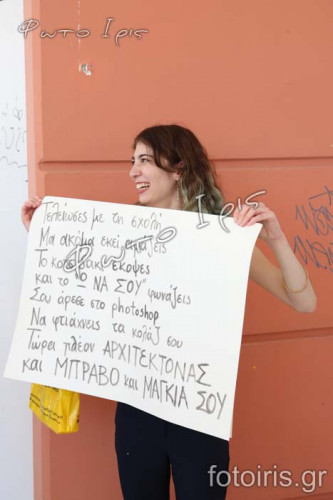 Φωτο Ιρις
Τελείωσες με τη σχολή
Μα ακόμα εκεί
Το έκοψες
και το "Ο ΝΑ ΣΟΥ" φωνάζεις
Σου άρεσε στο photoshop
Να φτιάχνεις τα κολάζ σου
Τώρα πλέον ΑΡΧΙΤΕΚΤΟΝΑΣ
και ΜΠΡΑΒΟ και ΜΑΓΚΙΑ ΣΟΥ
Φωτο Ιρις
Φωτο Ιρις
fotoiris.gr